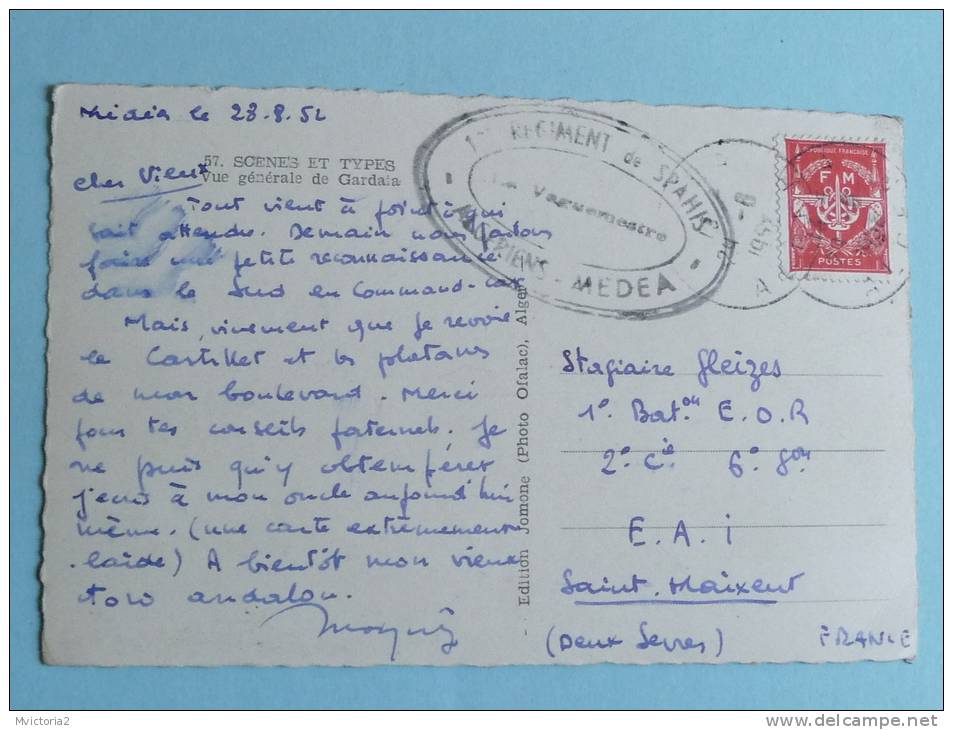 Médéa le 28.8.52
57. SCENES ET TYPES
Vue générale de Gardaïa
cher Vieux
Tout vient à point à qui
sait attendre. Demain nous partons
faire une petite reconnaissance
dans le Sud en Command-car
Mais, vivement que je revoie
le Castillet et les platanes
de mon boulevard. Merci
pour tes conseils paternels, je
ne puis qu'y obtempérer
j'écris à mon oncle aujourd'hui
même. (une carte extrêmement
laide) A bientôt mon vieux
toro andalou.
Edition Jomone (Photo Ofalac), Alger
1er REGIMENT de SPAHIS
ALGERIENS - MEDEA
Le Vaguemestre
REPUBLIQUE FRANCAISE
F M
POSTES
Stagiaire Gleizes
1° Bat.on E.O.R
2° Cie 6° Son
E.A.i
Saint. Maixent
(Deux Sevres)
FRANCE
Mvictoria2
www.delcampe.net